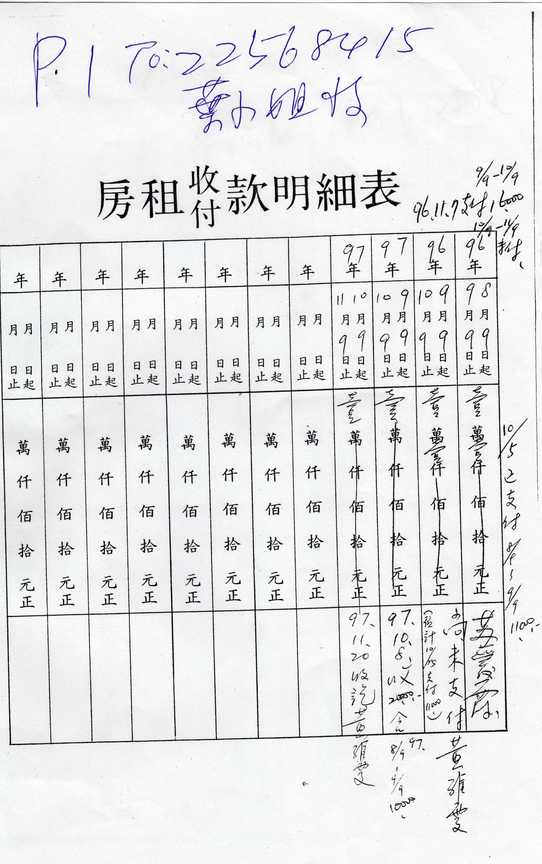 P.1 To:22568415
葉小姐收
房租收付款明細表
9/9-10/9
96.11.7支付16000.
10/9-11/9
未付、
96年
8月起 9月
9日起 9日止
壹萬壹仟佰拾元正
96年
9月 10月
9日起 9日止
壹萬壹仟佰拾元正
尚未支付 黃雅雯
97年
9月 10月
9日起 9日止
壹萬仟佰拾元正
97.10.8.收20000.-含97.8/9-9/9 10000.
97年
10月 11月
9日起 9日止
壹萬仟佰拾元正
97.11.20收訖黃雅雯
年
月月
日起日止
萬仟佰拾元正
年
月月
日起日止
萬仟佰拾元正
年
月月
日起日止
萬仟佰拾元正
年
月月
日起日止
萬仟佰拾元正
年
月月
日起日止
萬仟佰拾元正
年
月月
日起日止
萬仟佰拾元正
年
月月
日起日止
萬仟佰拾元正
年
月月
日起日止
萬仟佰拾元正
10/5已支付8/9-9/9 1100.